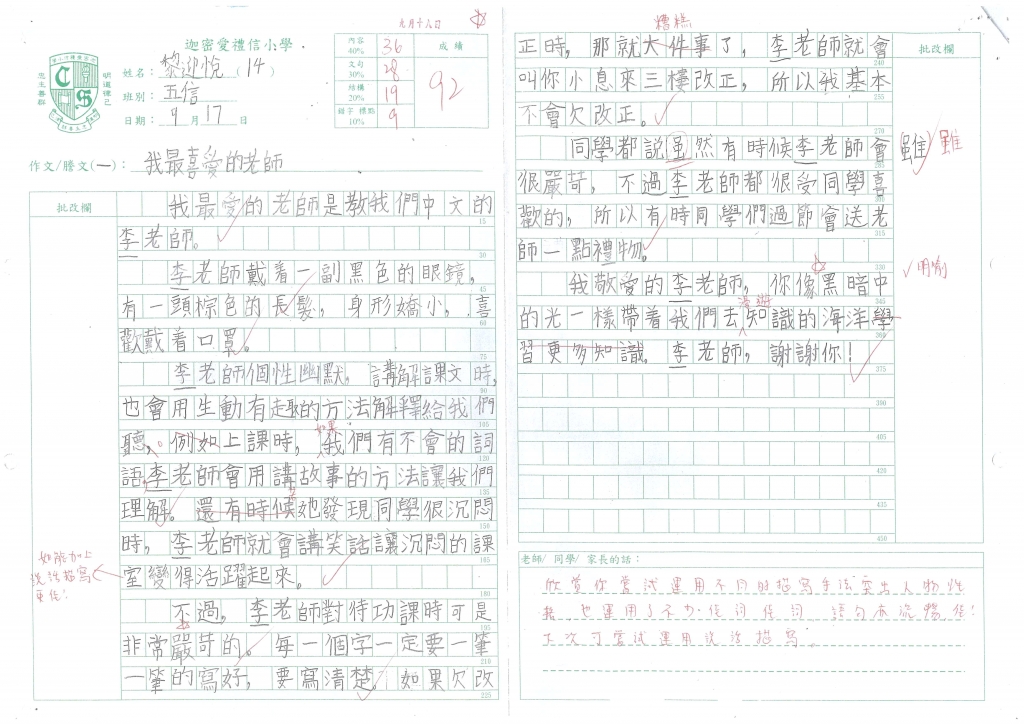 九月十八日
迦密愛禮信小學
明道律己
忠主善群
姓名：黎迎悅（14）
班別：五信
日期：9月17日
內容 40% 36
文句 30% 28
結構 20% 19
錯字 標點 10% 9
成績
92
作文/謄文(一)：我最喜愛的老師
批改欄
我最愛的老師是教我們中文的
15
李老師。
30
李老師戴着一副黑色的眼鏡，
45
有一頭棕色的長髮，身形嬌小，喜
60
歡戴着口罩。
75
李老師個性幽默，講解課文時，
90
也會用生動有趣的方法解釋給我們
105
如果
聽，例如上課時，我們有不會的詞
120
語，李老師會用講故事的方法讓我們
135
理解。還有時候她發現同學很沉悶
150
時，李老師就會講笑話讓沉悶的課
165
室變得活躍起來。
180
如能加上
說話描寫
更佳！
不過，李老師對待功課時可是
195
非常嚴苛的。每一個字一定要一筆
210
一筆的寫好，要寫清楚。如果欠改
225
糟糕
正時，那就大件事了，李老師就會
240
批改欄
叫你小息來三樓改正，所以我基本
不會欠改正。
270
同學都說虽然有時候李老師會
雖 雖
285
很嚴苛，不過李老師都很受同學喜
300
歡的，所以有時同學們過節會送老
315
師一點禮物。
330
我敬愛的李老師，你像黑暗中
明喻
345
漫遊
的光一樣帶着我們去知識的海洋學
360
習更多知識。李老師，謝謝你！
375
390
405
420
435
450
老師/ 同學/ 家長的話：
欣賞你嘗試運用不同的描寫手法突出人物性
格，也運用了不少佳詞佳句，語句亦流暢，佳！
下次可嘗試運用說話描寫。